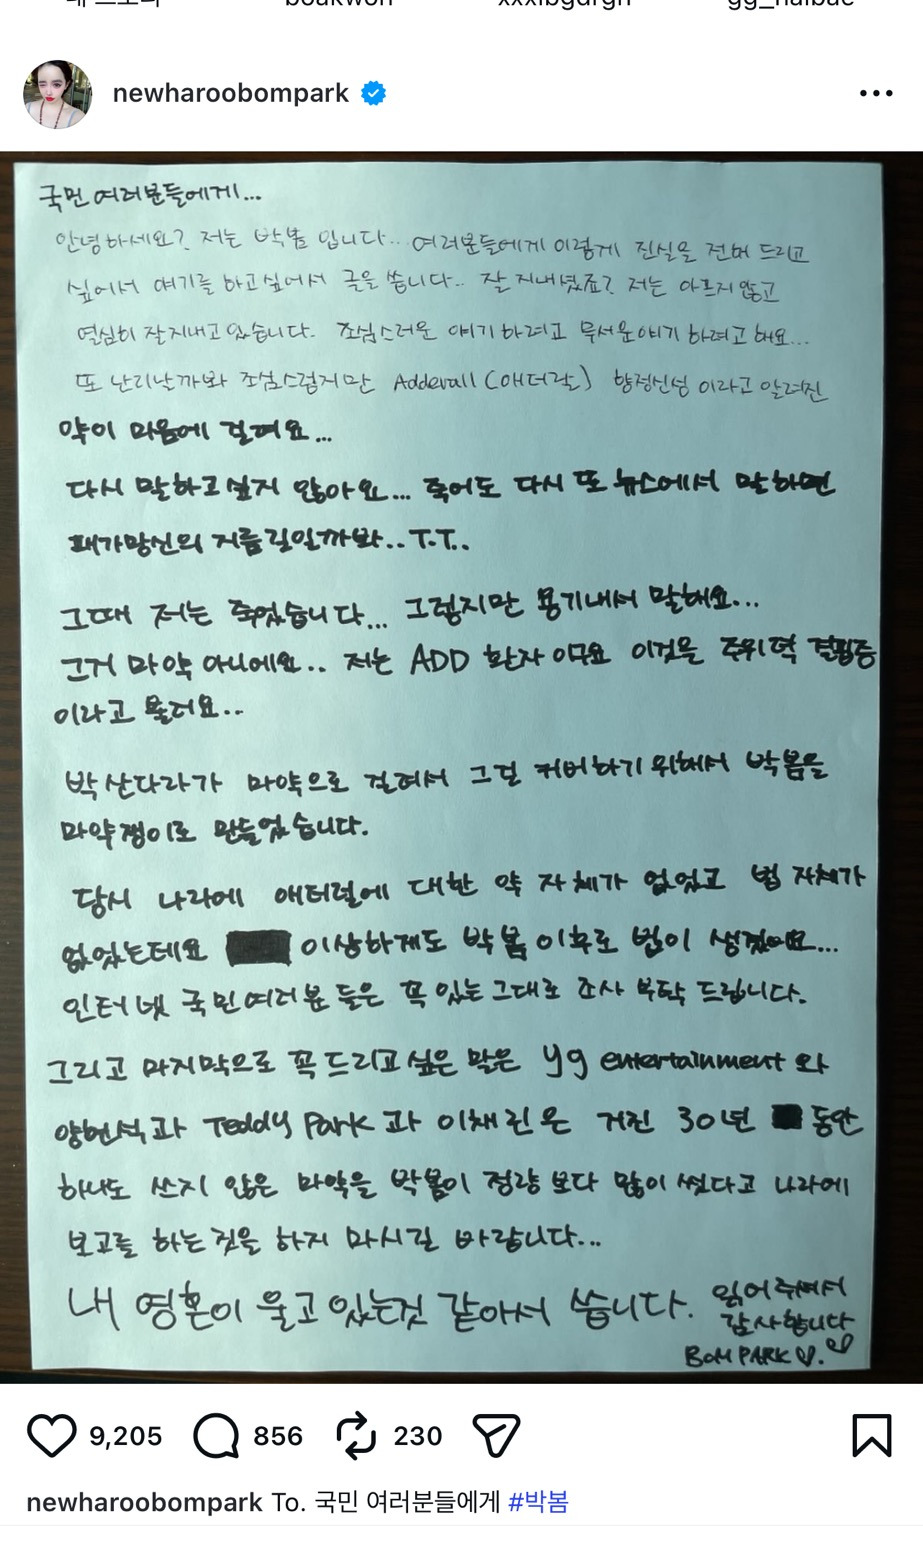 newharoobompark
국민 여러분들에게...
안녕하세요? 저는 박봄 입니다... 여러분들에게 이렇게 진실을 전해 드리고
싶어서 얘기를 하고싶어서 글을 씁니다.. 잘 지내셨죠? 저는 아프지 않고
열심히 잘지내고 있습니다. 조심스러운 얘기하려고 무서운얘기 하려고 해요...
또 난리날까봐 조심스럽지만 Adderall (애더랄) 향정신성 이라고 알려진
약이 마음에 걸려요...
다시 말하고 싶지 않아요... 죽어도 다시 또 뉴스에서 말하면
패가망신의 지름길일까봐.. T.T..
그때 저는 죽었습니다... 그렇지만 용기내서 말해요...
그거 마약 아니에요.. 저는 ADD 환자 이구요 이것을 주위력 결핍증
이라고 불러요..
박산다라가 마약으로 걸려서 그걸 커버하기 위해서 박봄을
마약쟁이로 만들었습니다.
당시 나라에 애더럴에 대한 약 자체가 없었고 법 자체가
없었는데요 이상하게도 박봄 이후로 법이 생겼어요...
인터넷 국민여러분 들은 꼭 있는 그대로 조사 부탁 드립니다.
그리고 마지막으로 꼭 드리고 싶은 말은 yg entertainment 와
양현석과 Teddy Park 과 이채린은 거진 30년 동안
하나도 쓰지 않은 마약을 박봄이 정량 보다 많이 썼다고 나라에
보고를 하는 짓을 하지 마시길 바랍니다...
내 영혼이 울고 있는것 같아서 씁니다. 읽어 주셔서
감사합니다
BOM PARK ♡. ♡
9,205 856 230
newharoobompark To. 국민 여러분들에게 #박봄